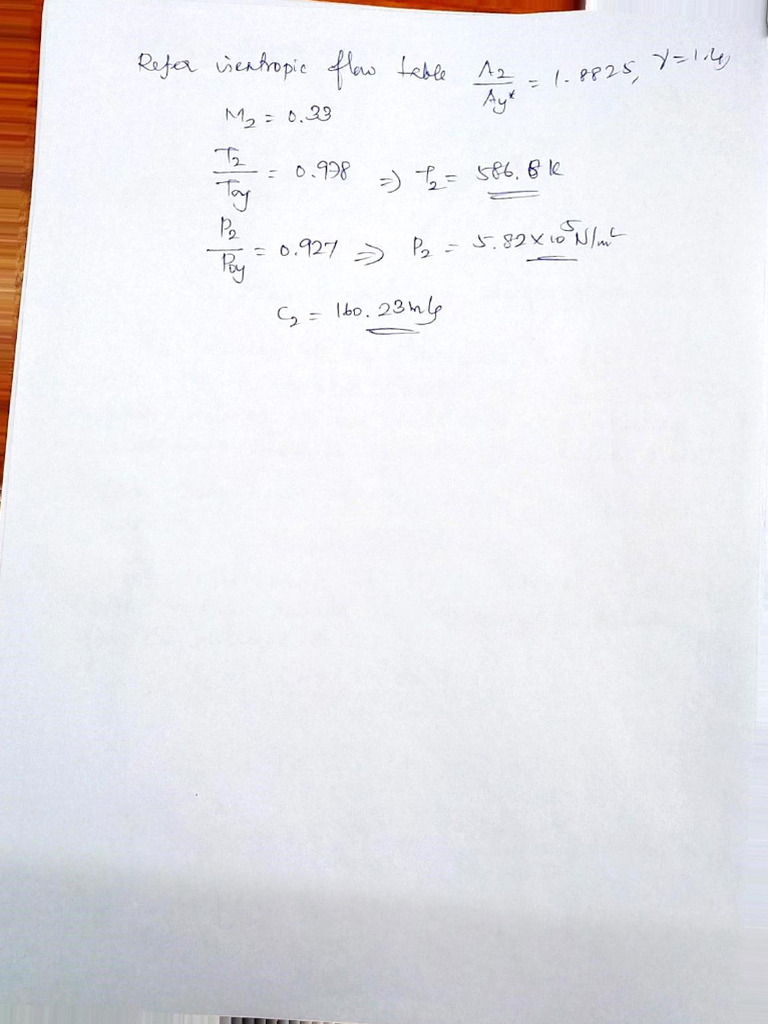 Refer isentropic flow table A2/Ay* = 1.8825, γ=1.4,
M2 = 0.33
T2/Toy = 0.978 => T2 = 586.8 K
P2/Poy = 0.927 => P2 = 5.82 x 10^5 N/m^2
C2 = 160.23 m/s